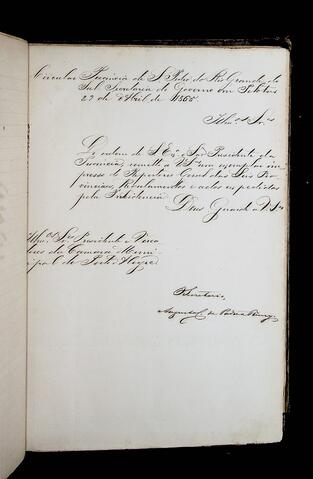 Circular Provincia de S. Pedro do Rio Grande do
Sul Secretaria do Governo em Pelotas
27 de Abril de 1865.
Illmos. Srs.
De ordem de S. Exa. o Snr. Presidente da
Provincia, remetto a VSas. um exemplar im-
presso do Repertorio Geral das Leis Pro-
vinciaes, Regulamentos e actos expedidos
pela Presidencia.
Deus Guarde a VSas
Illmos. Srs. Presidente e Verea
dores da Camara Muni-
cipal de Porto Alegre
O Secretario,
Augusto C. de Padua